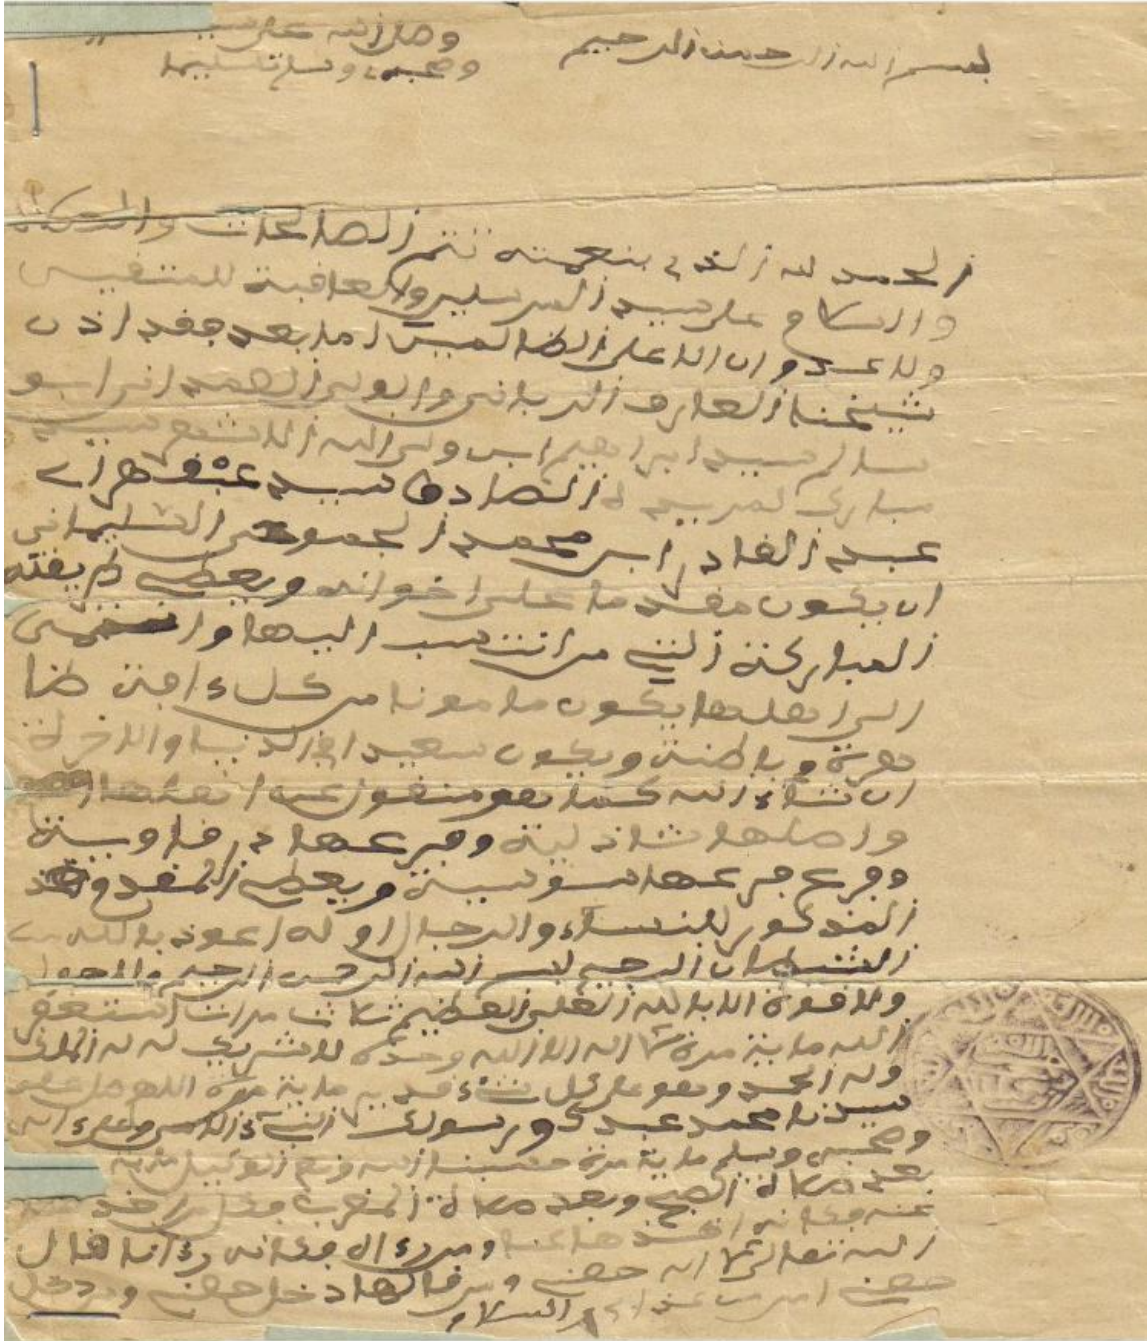 بسم الله الرحمن الرحيم
وصلى الله على
وصحبه وسلم تسليما
الحمد لله الذي بنعمته تتم الصالحات والصلاة
والسلام على سيد المرسلين والعاقبة للمتقين
ولا عدوان الا على الظالمين اما بعد فقد اذن
شيخنا العارف الرباني والولي الصمداني ابو
سالم سيد ابراهيم ابن ولي الله الاشهر سيد
مبارك لمريده الصادق سيد
عبد القادر ابن محمد السليماني
ان يكون مقدما على اخوانه ويعطي طريقته
المباركة التي من انتسب اليها وانتمى
الى اهلها يكون مامونا من كل ءافة ظا
هرية وباطنية ويكون سعيدا في الدنيا والاخرة
ان شاء الله كما هو منقول عن
واصلها شاذلية وفرعها درقاوية
وفرع فرعها سوسية ويعطي المقدم
المذكور للنساء والرجال اوله اعوذ بالله من
الشيطان الرجيم بسم الله الرحمن الرحيم ولا حول
ولا قوة الا بالله العلي العظيم ثلاث مرات استغفر
الله ماية مرة لا اله الا الله وحده لا شريك له له الملك
وله الحمد وهو على كل شيء قدير ماية مرة اللهم صل على
سيدنا محمد عبدك ورسولك النبيء الامي وعلى ءاله
وصحبه وسلم ماية مرة حسبنا الله ونعم الوكيل ماية
بعد صلاة الصبح وبعد صلاة المغرب فكل من اخذ
عنه فكانه اخذها عنا ومن رءاه فكانه رءانا قال
الله تعالى لا اله حصني ومن قالها دخل حصني ومن دخل
حصني امن من عذابي والسلام